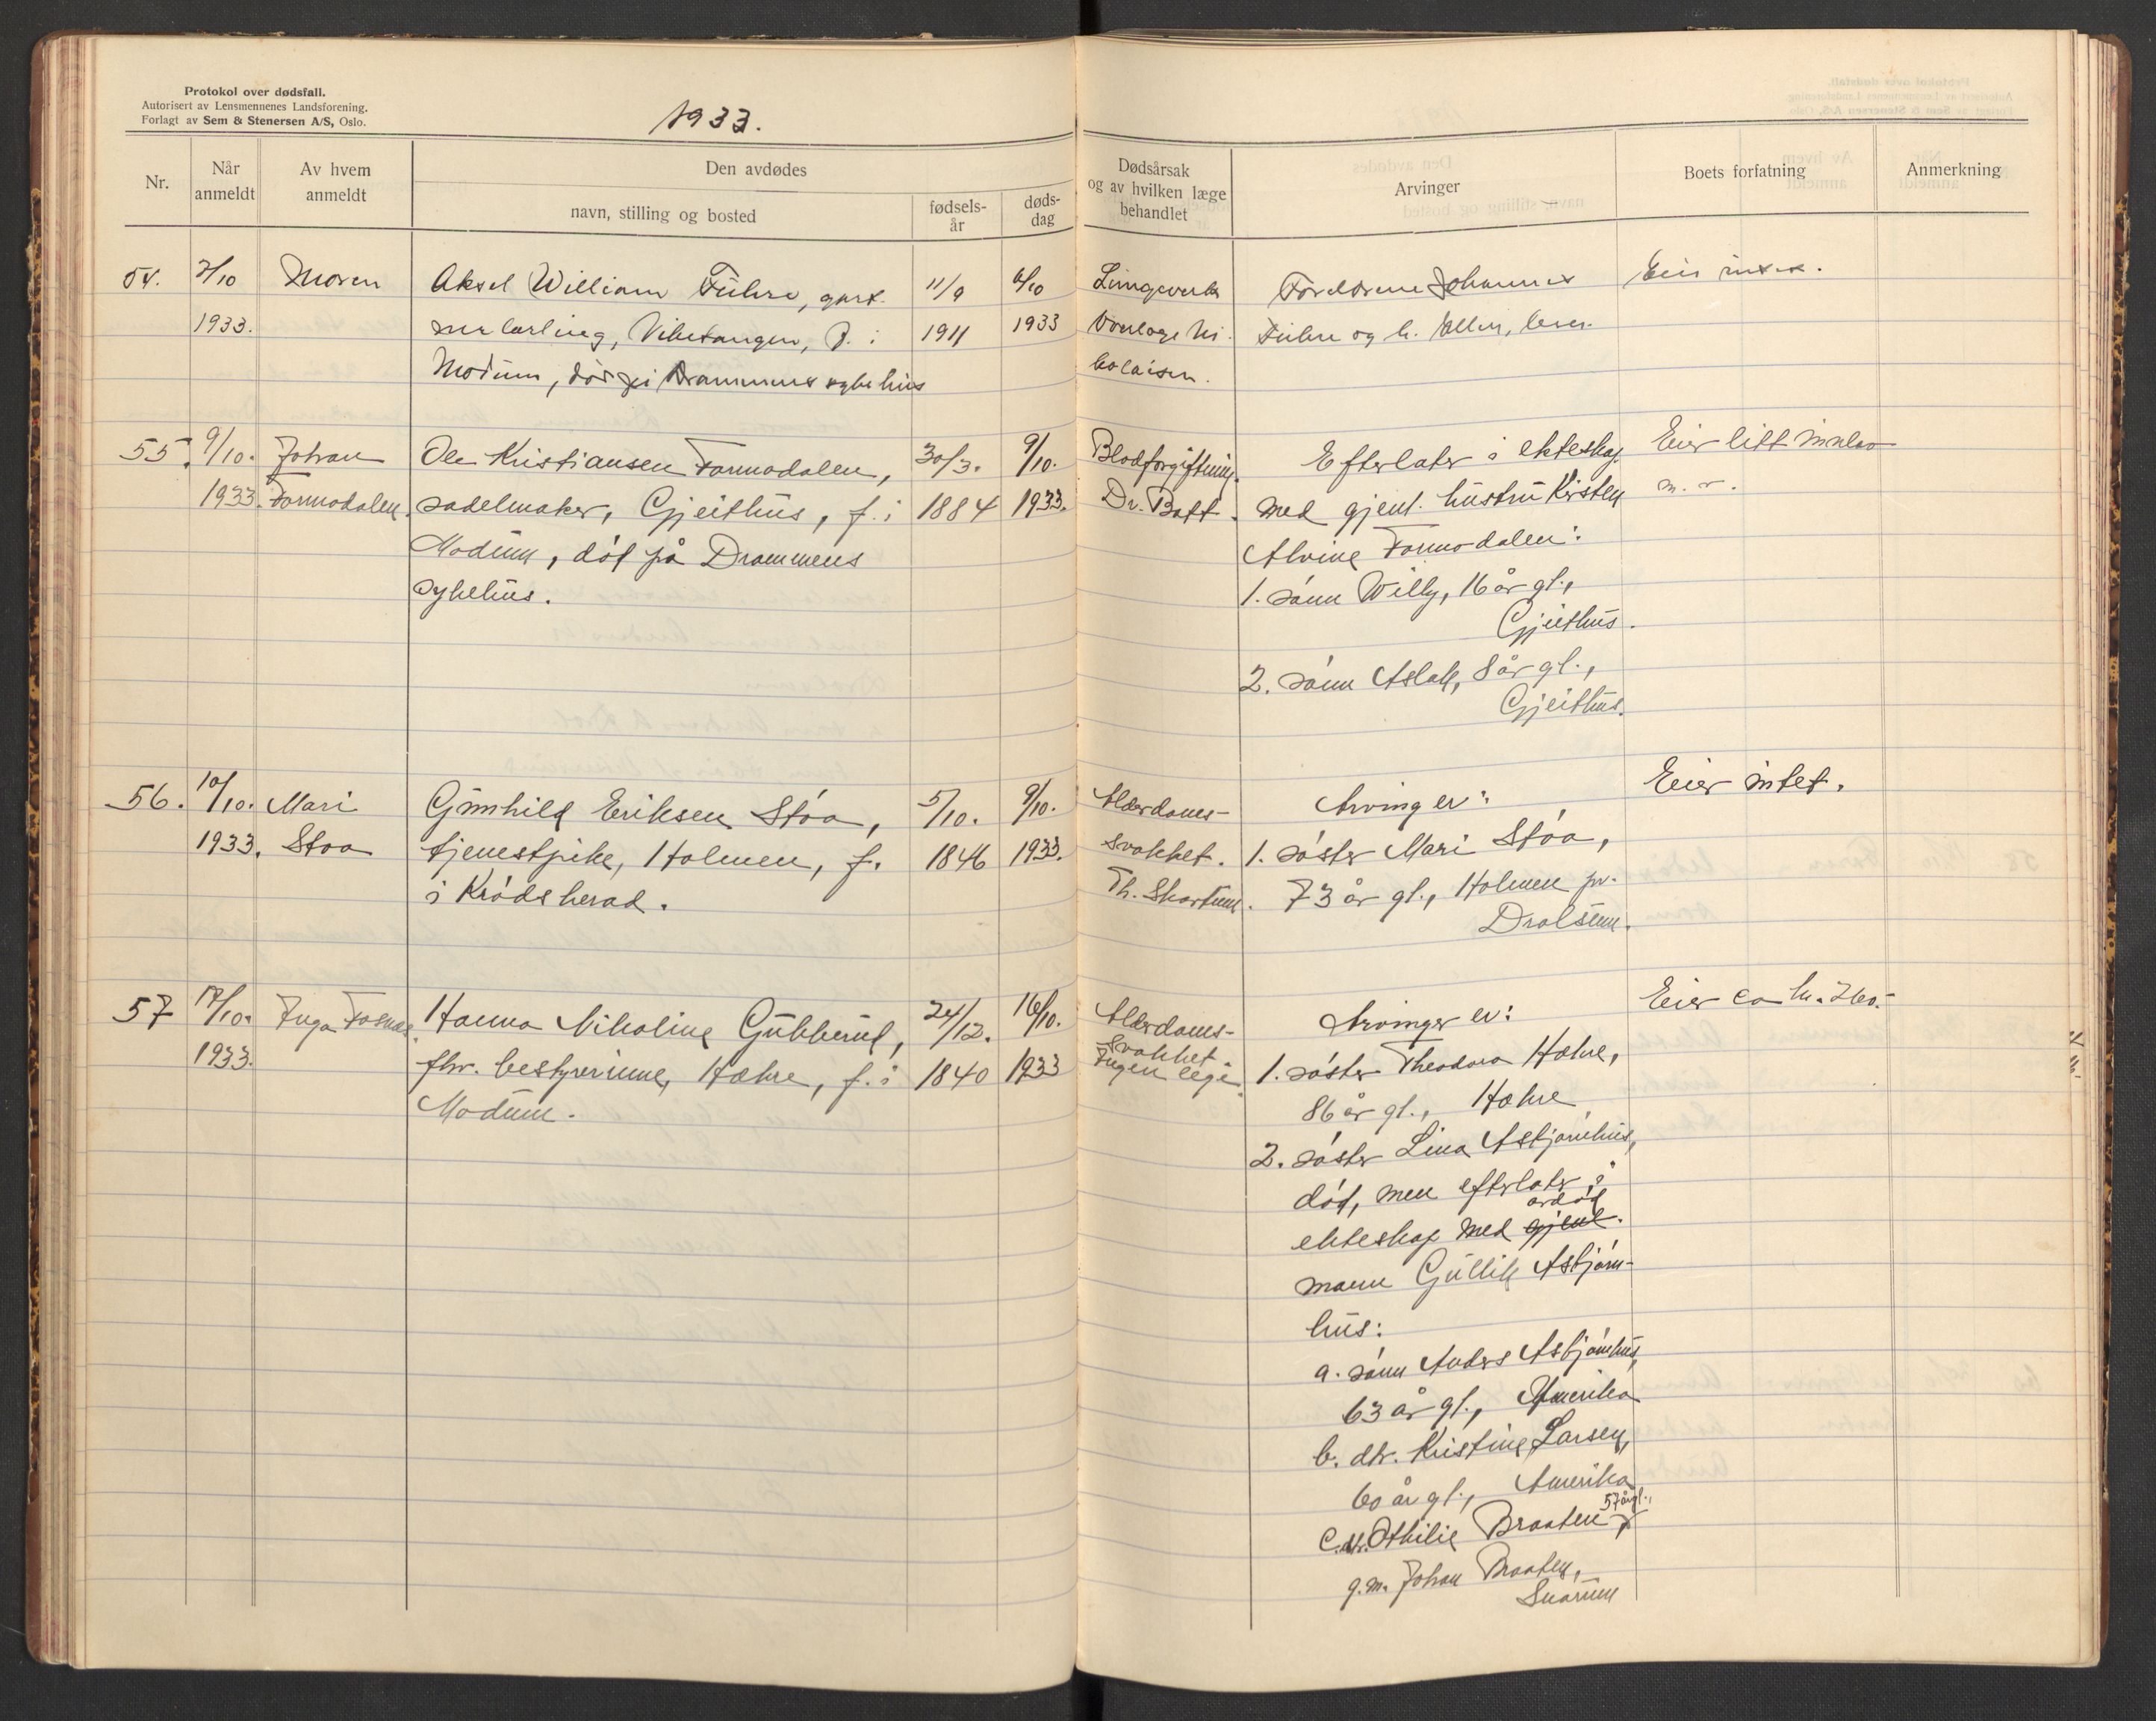 Protokol over dødsfall.
Autorisert av Lensmennenes Landsforening.
Forlagt av Sem & Stenersen A/S, Oslo.
1933.
Nr.
Når anmeldt
Av hvem anmeldt
Den avdødes
navn, stilling og bosted
fødsels-år
døds-dag
Dødsårsak og av hvilken læge behandlet
Arvinger
Boets forfatning
Anmerkning
54.
7/10
1933.
Moren
Aksel William Fuhre, gart.
nerlærling, Vikersund, f. i
Modum, død på Drammens sykehus
11/9
1911
6/10
1933
Overlæge Ni-
kolaisen.
Foreldrene Johannes
Fuhre og h. Ellen, lever.
Eier intet.
55.
9/10.
1933.
Johan
Formodalen.
Ole Kristiansen Formodalen,
sadelmaker, Gjeithus, f. i
Modum, død på Drammens
sykehus.
30/3.
1884
9/10.
1933.
Blodforgiftning.
Dr. Bott.
Efterlater i ekteskap
med gjenl. hustru Kirsten
Alvine Formodalen:
1. sønn Willy, 16 år gl.,
Gjeithus.
2. sønn Aslak, 8 år gl.,
Gjeithus.
Eier litt innbo
m. v.
56.
10/10.
1933.
Mari
Støa
Gunhild Eriksen Støa,
tjenestpike, Holmen, f.
i Krødsherad.
5/10.
1846
9/10.
1933.
Alderdoms-
svakhet.
Th. Skartum.
Arving er:
1. søster Mari Støa,
73 år gl., Holmen pr.
Drolsum.
Eier intet.
57
17/10.
1933.
Inga Fosnæs
Hanna Nikoline Gubberud,
fhv. bestyrerinne, Hæhre, f. i
Modum.
24/12.
1840
16/10.
1933
Alderdoms-
svakhet.
Ingen lege.
Arvinger er:
1. søster Theodora Hæhre,
86 år gl., Hæhre
2. søster Lina Asbjørnhus,
død, men efterlater i
avdød
ekteskap med gjenl.
mann Gullik Asbjørn-
hus:
a. sønn Anders Asbjørnhus,
63 år gl., Amerika
b. dtr. Kristine Larsen,
60 år gl., Amerika
57 år gl.,
c. dtr. Othilie Braaten
g.m. Johan Braaten,
Snarum
Eier ca kr. 260.-